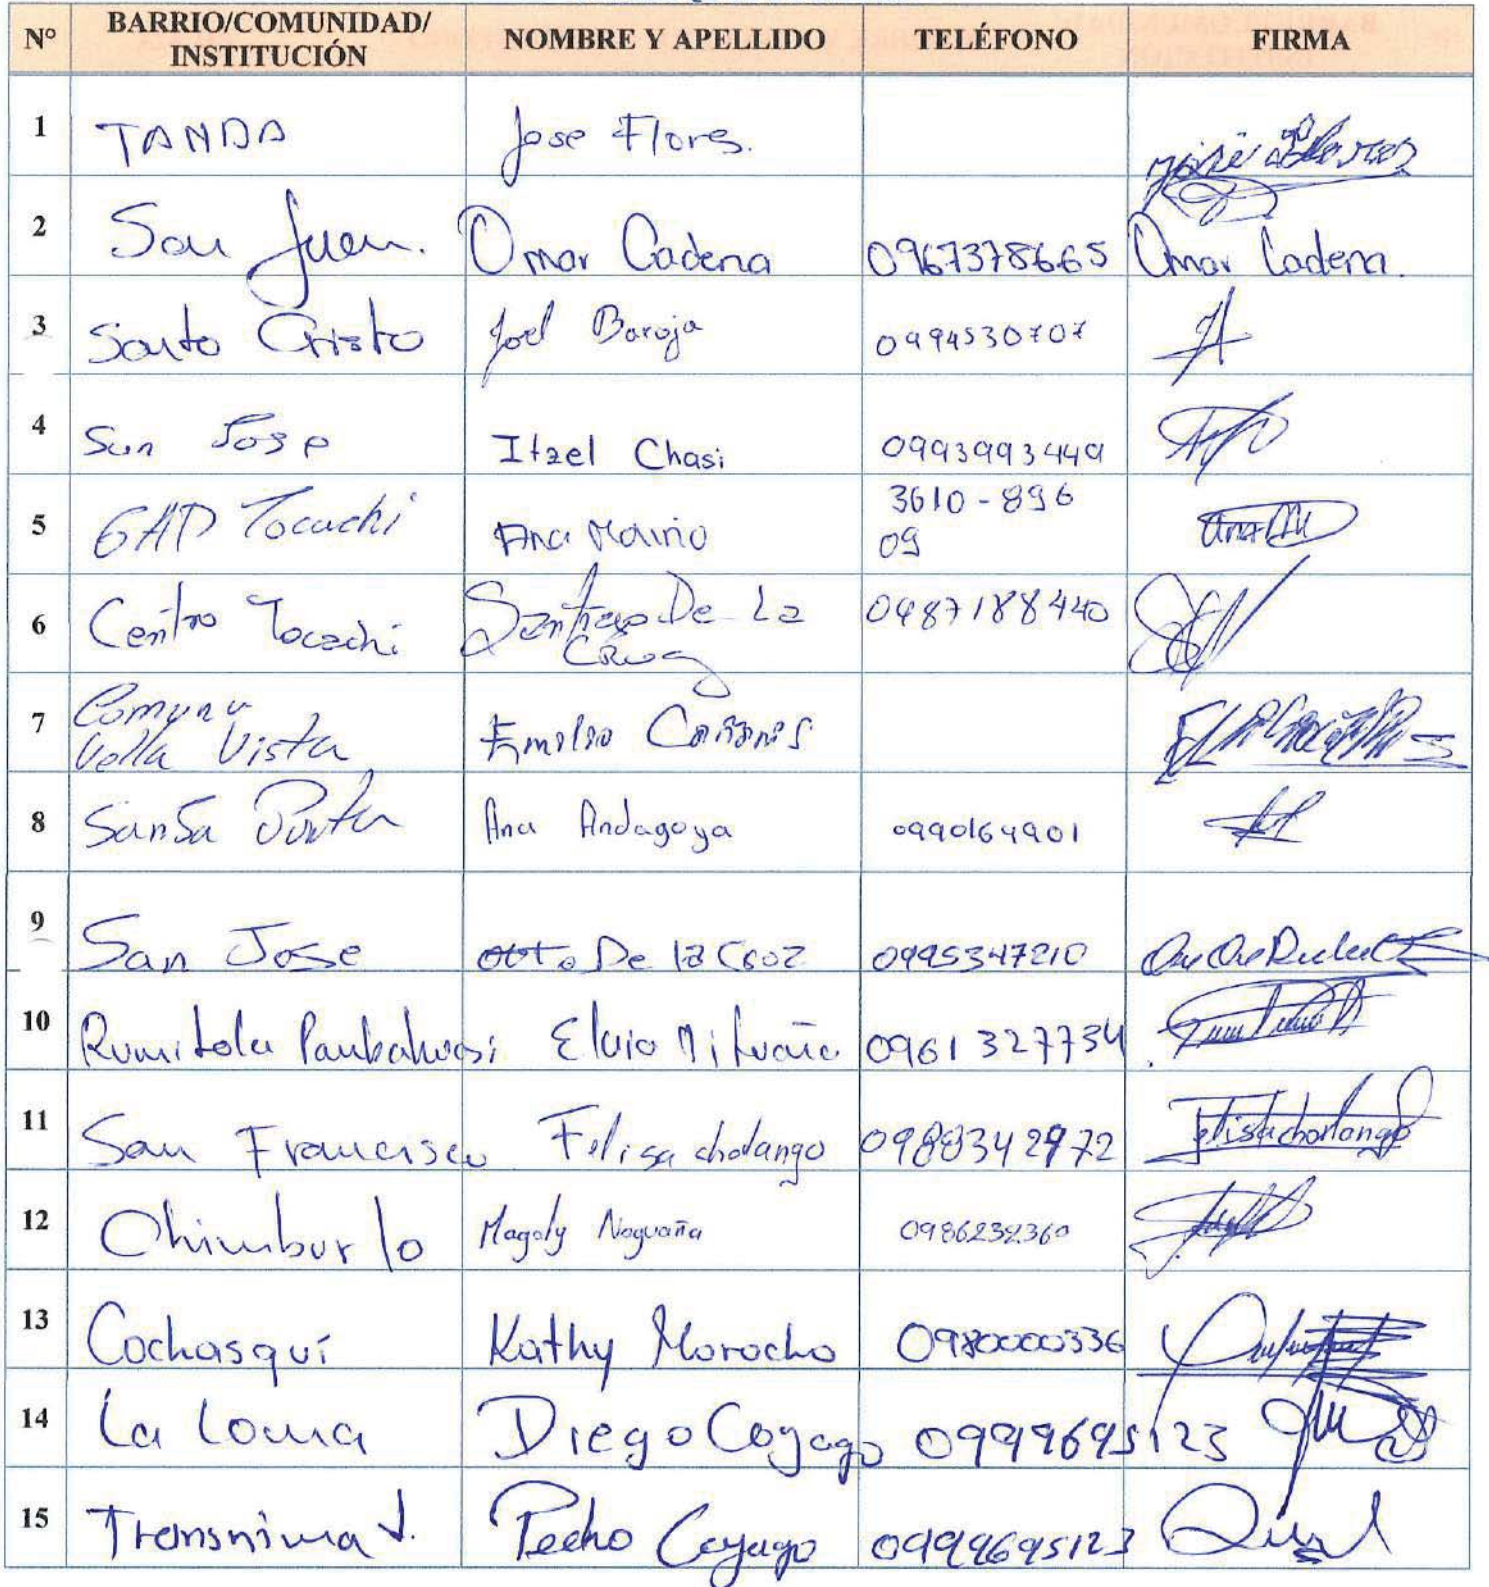 N° BARRIO/COMUNIDAD/ INSTITUCIÓN NOMBRE Y APELLIDO TELÉFONO FIRMA
1 TANDA Jose Flores. José Flores
2 San Juan. Omar Cadena 0967378665 Omar Cadena.
3 Santo Cristo Joel Baroja 0994530707
4 San Jose Itzel Chasi 0993993449
5 GAD Tocachi Ana Mariño 3610-896
09
6 Centro Tocachi Santiago De La
Cruz 0987188440
7 Comuna
Vella Vista Emilio
8 Santa Ana Andagoya 0990164901
9 San Jose De la Cruz 0995347210
10 Rumitola Pambahuasi Elvio 0961327734
11 San Francisco Felisa cholango 0988342972 Felisa cholango
12 Chimbur lo Magaly Noguaña 0986232360
13 Cochasquí Kathy Morocho 0980000336
14 La Loma Diego Coyago 0999695123
15 Pedro Coyago 0999695123